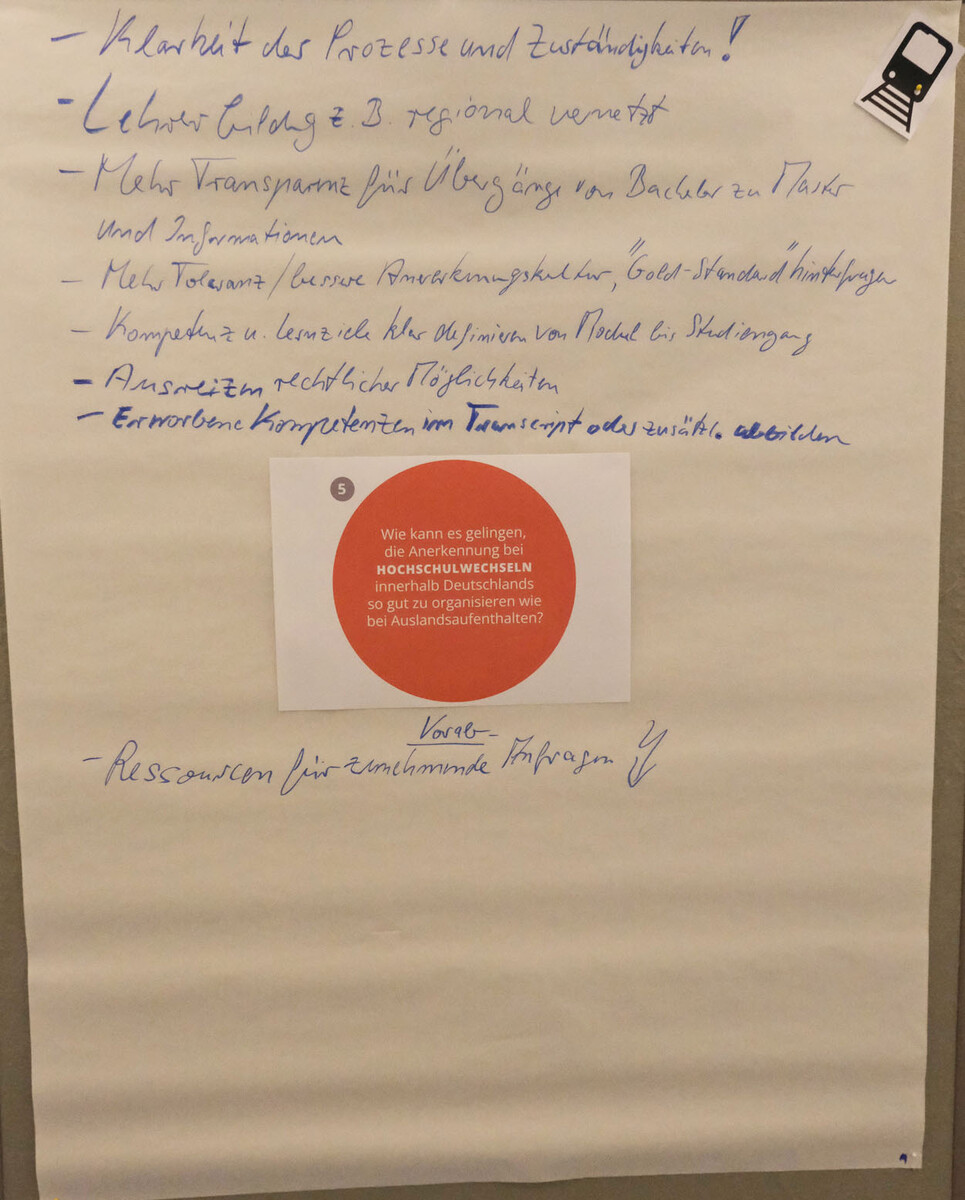 - Klarheit der Prozesse und Zuständigkeiten!
- Lehrerbildung z.B. regional vernetzt
- Mehr Transparenz für Übergänge von Bachelor zu Master
und Informationen
- Mehr Toleranz / bessere Anerkennungskultur, "Gold-Standard" hinterfragen
- Kompetenz u. Lernziele klar definieren von Modul bis Studiengang
- Ausreizen rechtlicher Möglichkeiten
- Erworbene Kompetenzen im Transcript oder zusätzl. abbilden
5
Wie kann es gelingen,
die Anerkennung bei
HOCHSCHULWECHSELN
innerhalb Deutschlands
so gut zu organisieren wie
bei Auslandsaufenthalten?
Vorab-
- Ressourcen für zunehmende Anfragen